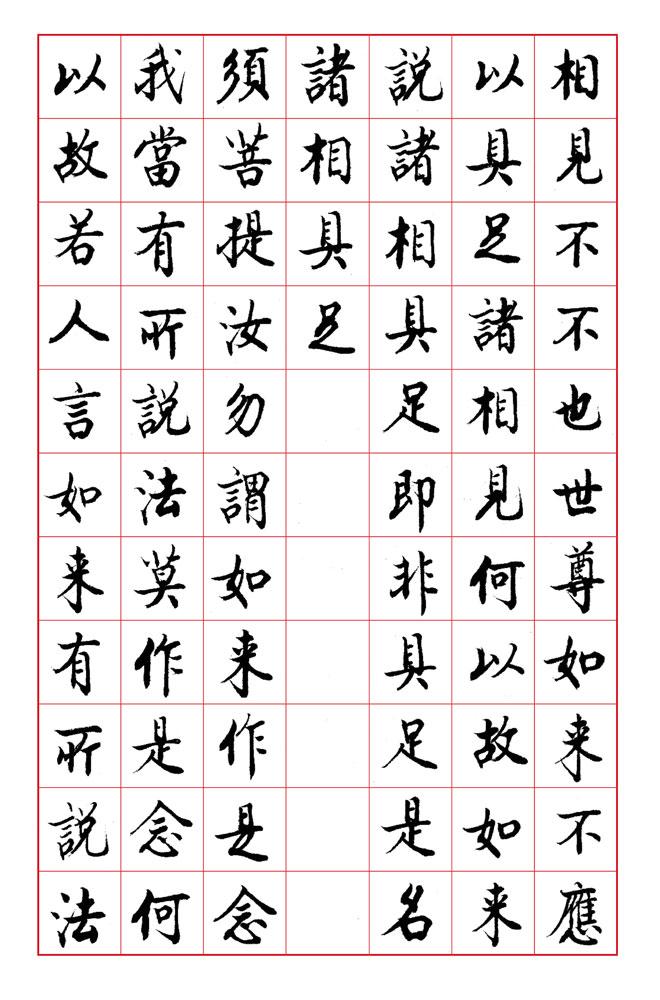 相見不不也世尊如来不應
以具足諸相見何以故如来
説諸相具足即非具足是名
諸相具足
須菩提汝勿謂如来作是念
我當有所説法莫作是念何
以故若人言如来有所説法